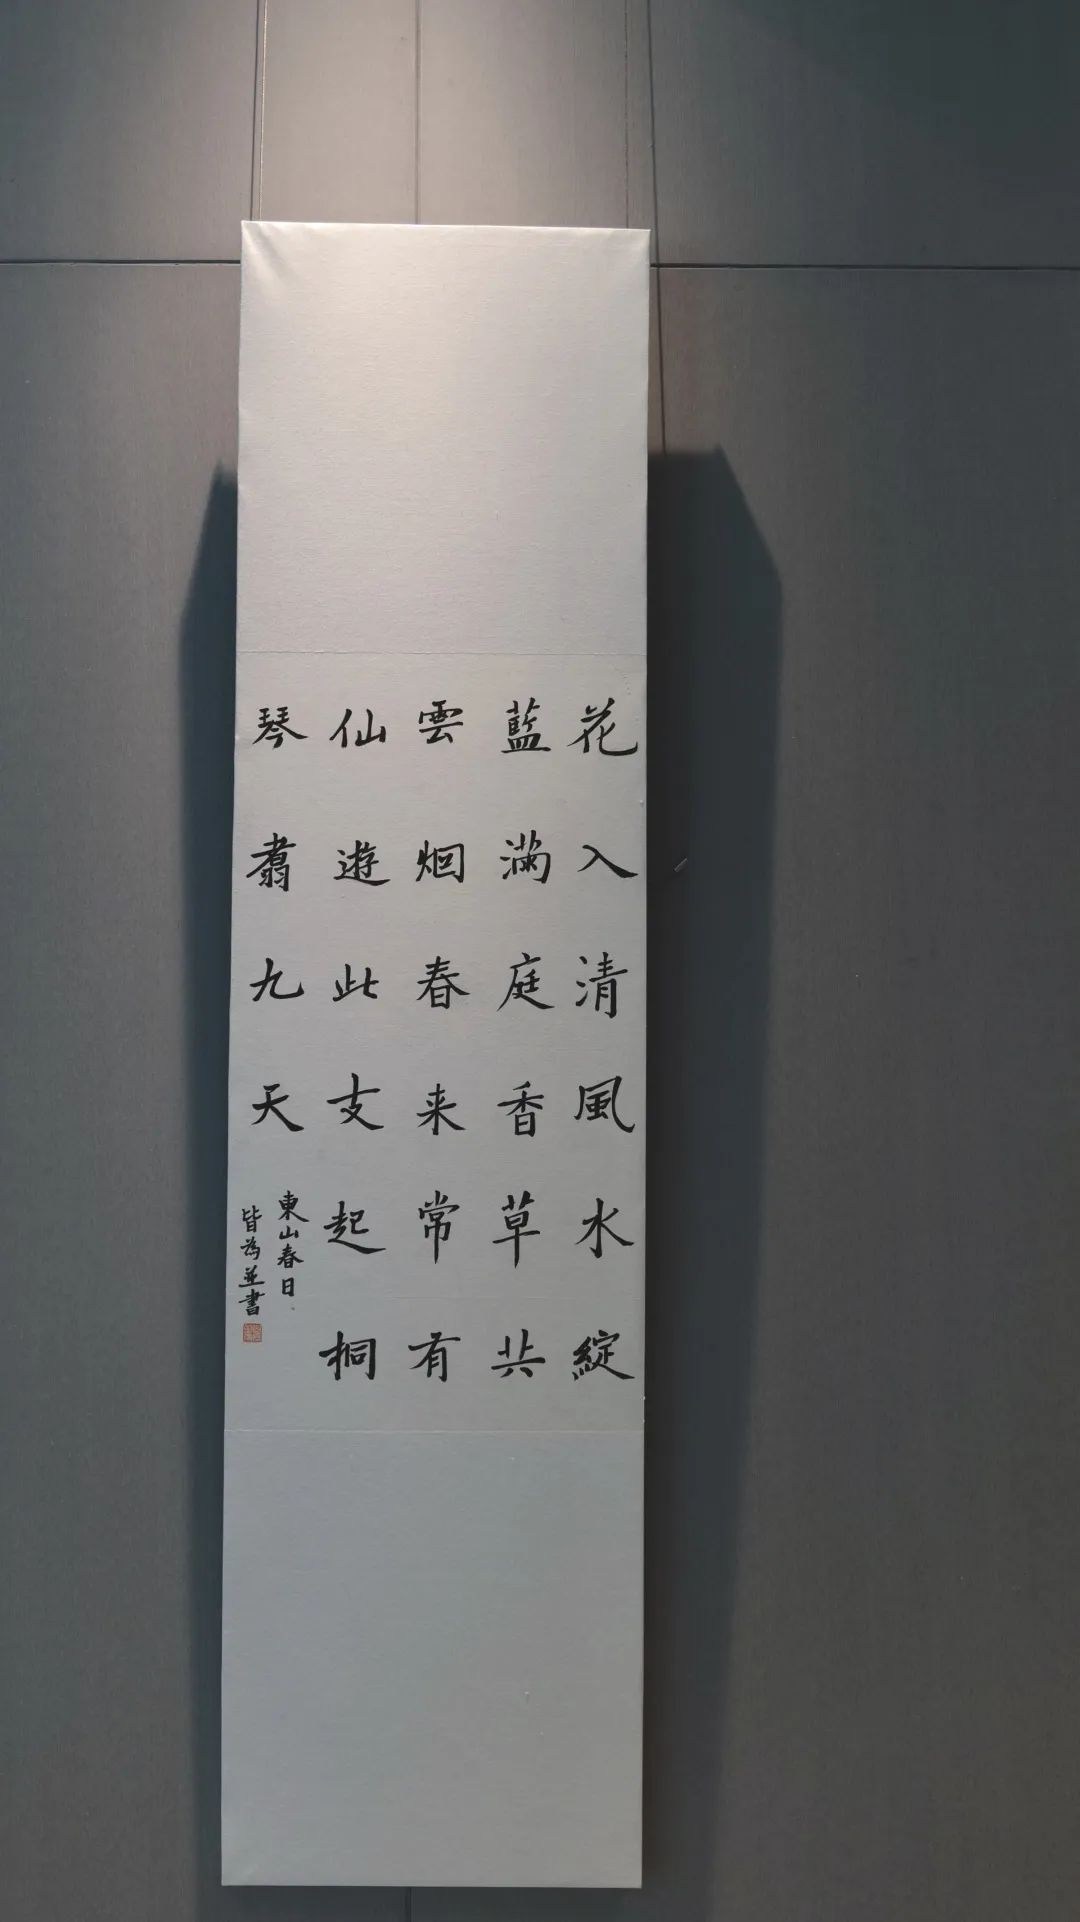 花入清風水綻
藍滿庭香草共
雲烟春来常有
仙遊此支起桐
琴翥九天
東山春日
皆為並書